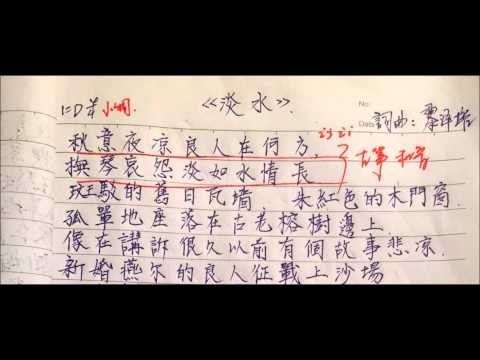 1=D 羊 小调.
《淡水》.
No:
Date
詞曲:
秋意夜凉良人在何方,
撫琴哀怨淡如水情長
斑駁的舊日瓦墻 朱紅色的木門窗.
孤單地座落在古老榕樹邊上.
像在講訴很久以前有個故事悲凉.
新婚燕尔的良人征戰上沙場